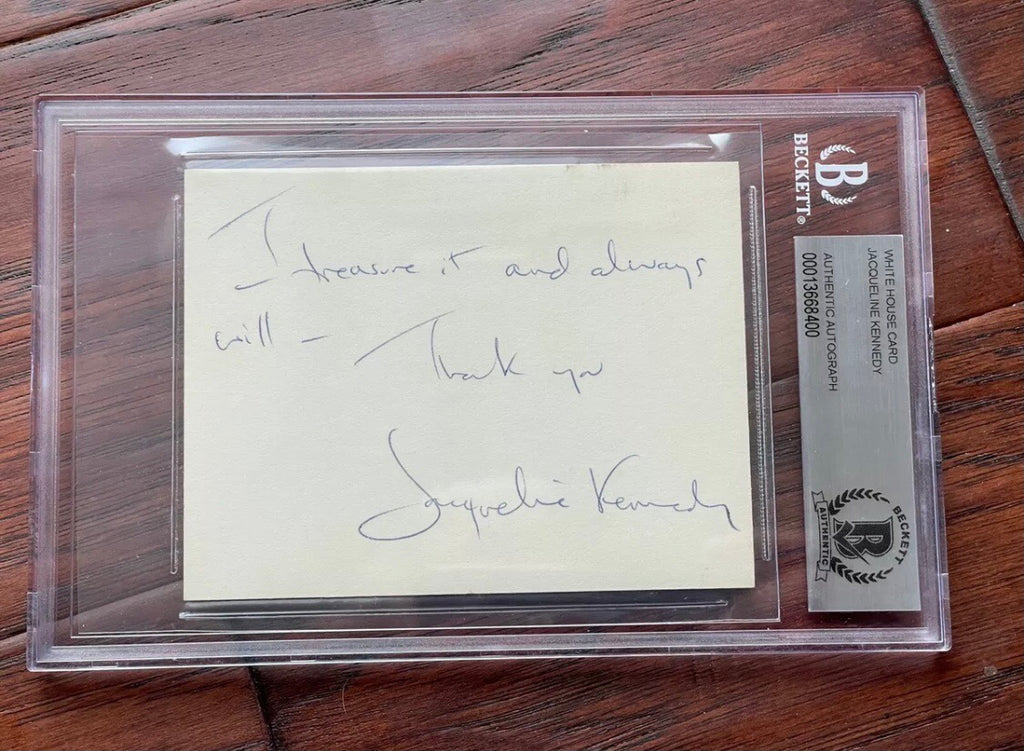 I treasure it and always
will – Thank you
Jacqueline Kennedy
BECKETT®
B
WHITE HOUSE CARD
JACQUELINE KENNEDY
AUTHENTIC AUTOGRAPH
00013668400
BECKETT
B
AUTHENTIC